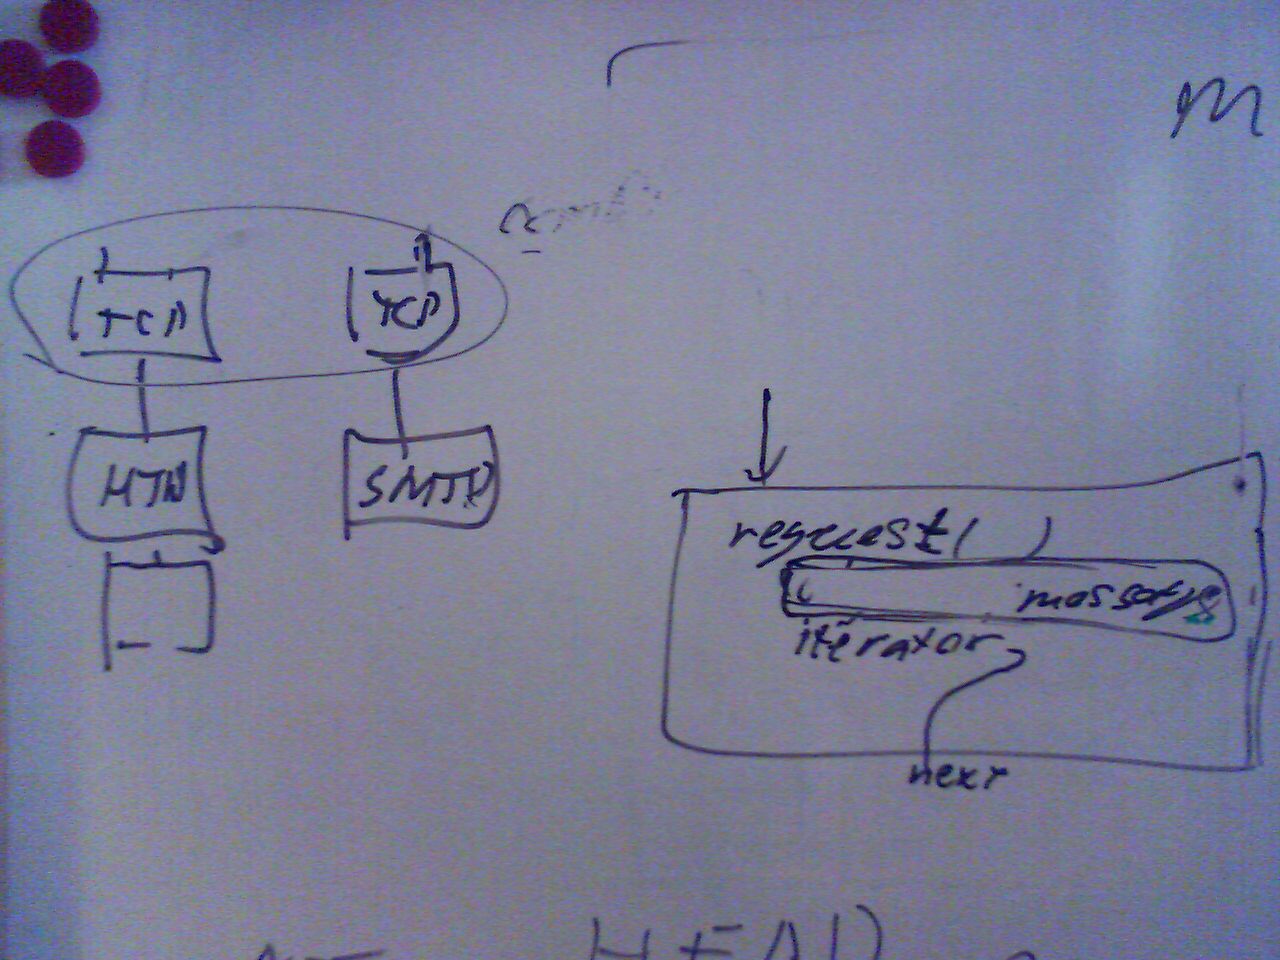 m
TCP TCP
HTTP SMTP
request( )
message
iterator
next
HEAD